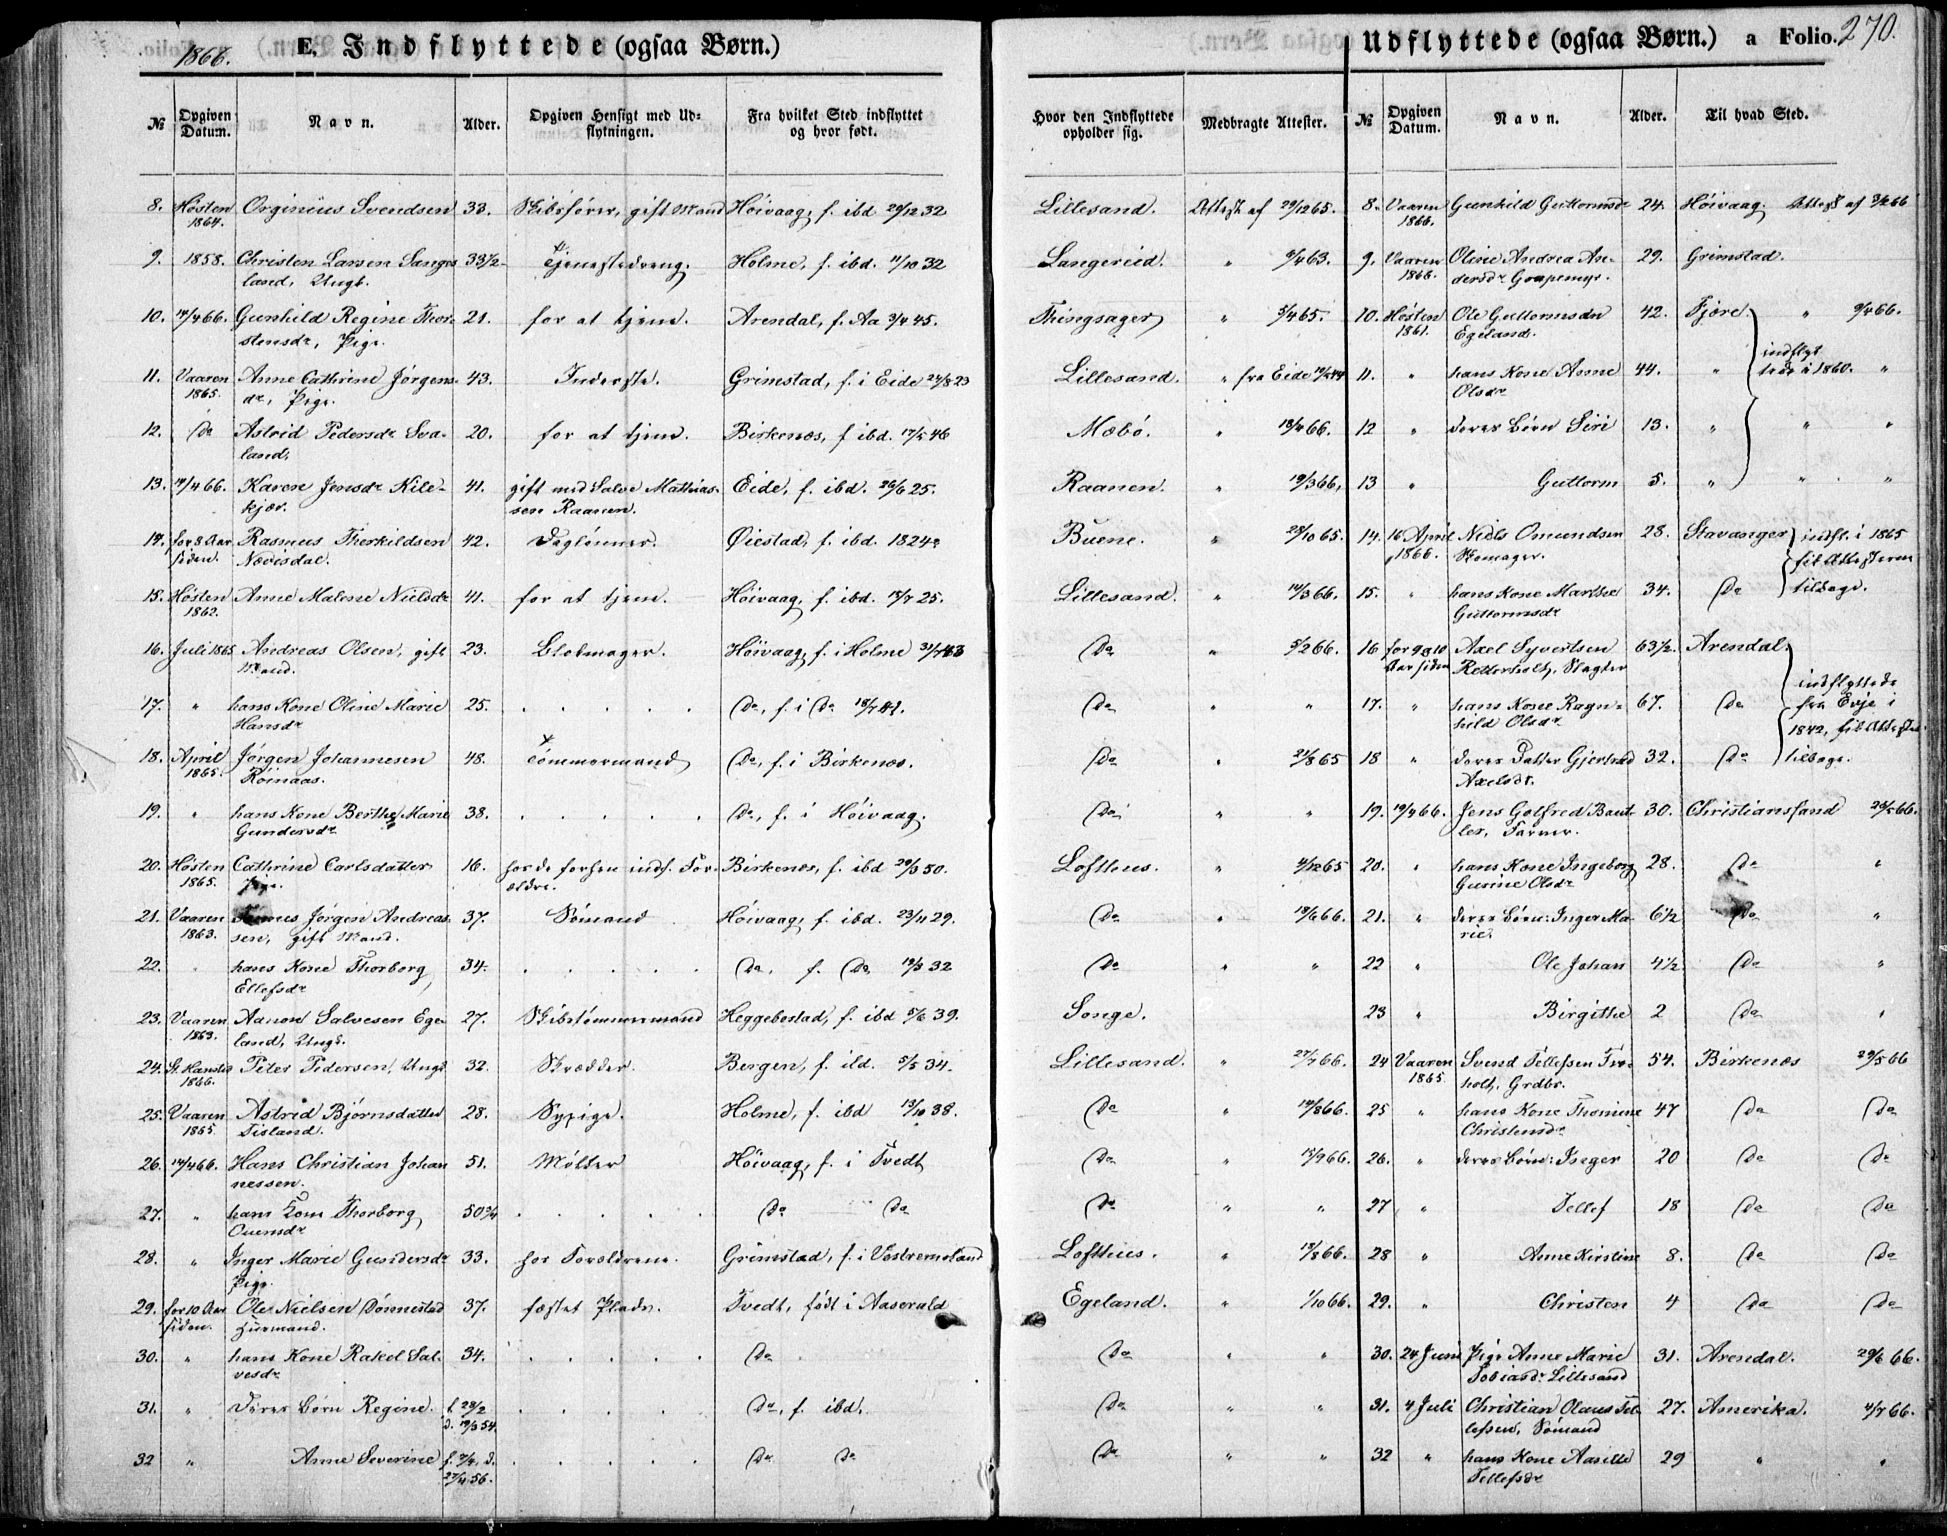 1866.
E. Indflyttede (ogsaa Børn.)
Udflyttede (ogsaa Børn.) a Folio. 270.
№ Opgiven Datum. Navn. Alder. Opgiven Hensigt med Udflytningen. Fra hvilket Sted indflyttet og hvor født. Hvor den Indflyttede opholder sig. Medbragte Attester. № Opgiven Datum. Navn. Alder. Til hvad Sted.
8. Høsten 1864. Orginius Svendsen 33. Skibsfører, gift Mand Höivaag, f. ibd 29/12 32 Lillesand. Attest af 29/12 65. 8. Vaaren 1866. Gunhild Guttormsdr 24. Höivaag. Attest af
9. 1858. Christen Larsen Sangesland, Ungk. 33½ Tjenestedreng. Holme, f. ibd. 11/10 32 Langereid. " 9/4 63. 9. Vaaren 1866. Oline Andrea Andersdr 29. Grimstad.
10. 14/4 66. Gunhild Regine Thorstensdr, Pige. 21. for at tjene. Arendal, f. Aa 3/4 45. Thingsager " 5/4 65. 10. Høsten 1861. Ole Guttormsen Egeland. 42. Fjære. " 9/4 66.
11. Vaaren 1865. Anne Cathrine Jørgensdr, Pige. 43. Inderste. Grimstad, f. i Eide 24/8 23 Lillesand. " fra Eide 11. " hans Kone Anne Olsdr 44. " indflyttede i 1860. "
12. Do Astrid Pedersdr Svaland. 20. for at tjene. Birkenæs, f. ibd. 17/5 46 Mæbö. " 13/4 66. 12 " deres Børn Siri 13. " " "
13. 14/4 66. Karen Jensdr Kilekjær. 41. gift med Salve Mathiassen Raanen. Eide, f. ibd. 26/6 25. Raanen. " 19/3 66. 13 " Guttorm 5. " " "
14. for 8 Aar siden. Rasmus Therkildsen Nævisdal. 42. Daglønner. Øiestad, f. ibd. 1824 Buene. " 28/10 65. 14. 16 April 1866. Niels Omundsen Skomager. 28. Stavanger indfl. i 1865 fik Attesterne tilbage.
15. Høsten 1862. Anne Malene Nielsdr 41. for at tjene. Höivaag, f. ibd. 17/7 25. Lillesand. " 14/3 66. 15. " hans Kone Marthe Guttormsdr 34. Do
16. Juli 1865 Andreas Olsen, gift Mand. 23. Blokmager. Höivaag, f. i Holme Do " 5/2 66. 16 for 9 a 10 Aar siden Axel Syvertsen Retterholt, Slagter 63½. Arendal. indflyttede fra Evje i 1842, fik Attesterne tilbage.
17. " hans Kone Oline Marie Hansdr 25. Do, f. i Do Do " " 17. " hans Kone Ragnhild Olsdr 67. Do
18. April 1865. Jørgen Johannesen Röinaas. 48. Tömmermand Do, f. i Birkenæs. Do " 21/8 65 18 " deres Datter Gjertrud Axelsdr. 32. Do
19. " hans Kone Berthe Marie Gundersdr 38. Do, f. i Höivaag. Do " " 19. 19/4 66. Jens Golfred Farver. 30. Christianssand
20. Høsten 1865. Cathrine Carlsdatter Pige. 16. hos de forhen indf. Forældre. Birkenæs, f. ibd 29/3 50. Lofthus. " 4/12 65 20. " hans Kone Ingeborg Gurine Olsdr 28. Do "
21. Vaaren 1863. Jørgen Andreassen, gift Mand. 37. Sömand Höivaag, f. ibd. 23/11 29. Do " 19/6 66. 21. " deres Børn: Inger Marie. 6½ Do "
22. " hans Kone Thorborg Ellefsdr 34. Do. f. Do Do " " 22 " Ole Johan 4½ Do "
23. Vaaren 1863. Aanon Salvesen Egeland, Ungk. 27. Skibstömmermand Heggebostad, f. ibd 5/6 39. Songe. 23 " Birgithe 2 Do "
24. St. Hansti 1866. Peter Pedersen, Ungk 32. Skrædder. Bergen, f. ibd. 5/5 34. Lillesand. " 27/7 66. 24 Vaaren 1865 Svend Tellefsen holt, Grdbr. 54. Birkenæs 29/5 66
25. Vaaren 1865 Astrid Björnsdatter Tisland. 28. Sypige. Holme, f. ibd 13/10 38. Do " 14/8 66. 25 " hans Kone Thomine Christensdr 47 Do Do
26. 14/4 66. Hans Christian Johannessen. 51. Mölter Höivaag, f. i Tvedt Do " 15/9 66. 26. " deres Børn: Inger 20 Do Do
27. " hans Kone Thorborg 50¾ Do Do Do " " 27 " Tellef 18 Do Do
28. " Inger Marie Gundersdr Pige. 33. hos Forældrene. Grimstad, f. i Vestremoland Lofthus. " 18/8 66. 28 " Anne Kirstine 8. Do Do
29. for 10 Aar siden. Ole Nielsen Dönnestad Huusmand. 37. fæstet Plads. Tvedt, født i Aaserald Egeland. " 1/10 66. 29. " Christen 4 Do Do
30. " hans Kone Rakel Salvesdr 34. Do Do " " 30. 24 Juni Pige Anne Marie Tobiasdr Lillesand 31. Arendal. 29/6 66.
31. " Deres Børn Regine. f. 28/2 d. 19/3 54 Do, f. ibd. Do " " 31. 4 Juli Christian Olaus Tellefsen, Sömand 27. Amerika. 4/7 66.
32 " Anne Severine Do Do Do " " 32 " hans Kone Aasille Tellefsdr 29 " "